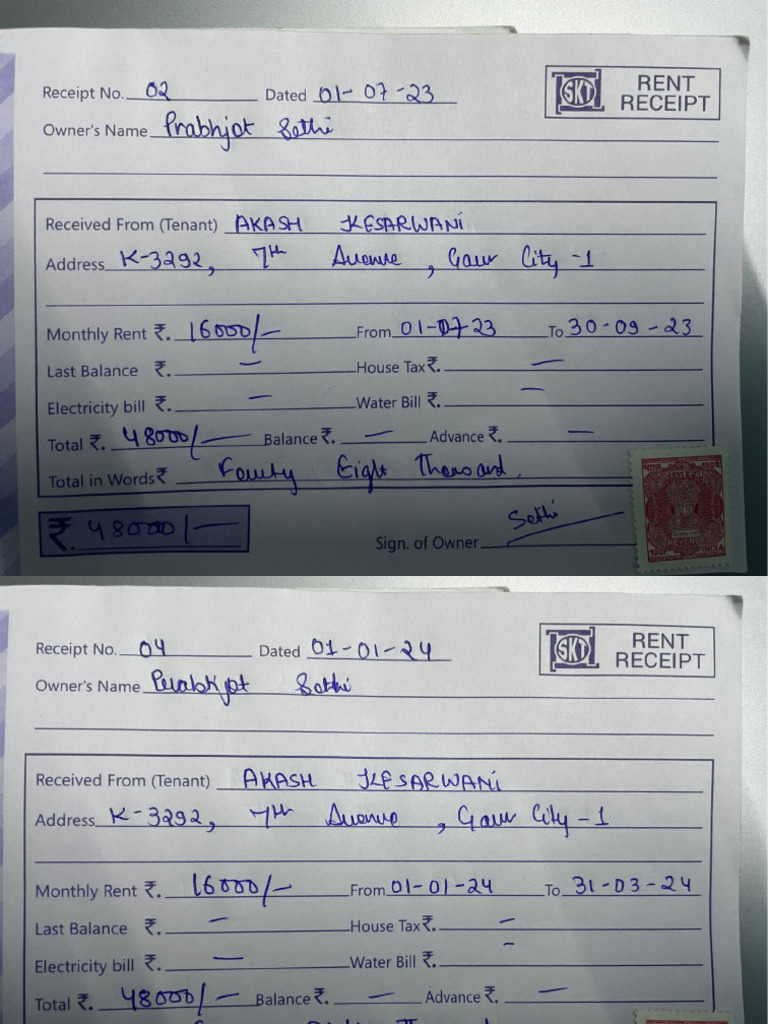 Receipt No. 02 Dated 01-07-23
SKT RENT RECEIPT
Owner's Name Prabhjot Sethi
Received From (Tenant) AKASH KESARWANi
Address K-3292, 7th Avenue, Gaur City -1
Monthly Rent ₹. 16000/- From 01-07-23 To 30-09-23
Last Balance ₹. - House Tax ₹. -
Electricity bill ₹. - Water Bill ₹. -
Total ₹. 48000/- Balance ₹. - Advance ₹. -
Total in Words ₹ Fourty Eight Thousand.
₹. 48000/-
Sign. of Owner Sethi
भारत 100p
REVENUE
100p INDIA
Receipt No. 04 Dated 01-01-24
SKT RENT RECEIPT
Owner's Name Prabhjot Sethi
Received From (Tenant) AKASH KESARWANi
Address K-3292, 7th Avenue, Gaur City - 1
Monthly Rent ₹. 16000/- From 01-01-24 To 31-03-24
Last Balance ₹. - House Tax ₹. -
Electricity bill ₹. - Water Bill ₹. -
Total ₹. 48000/- Balance ₹. - Advance ₹. -